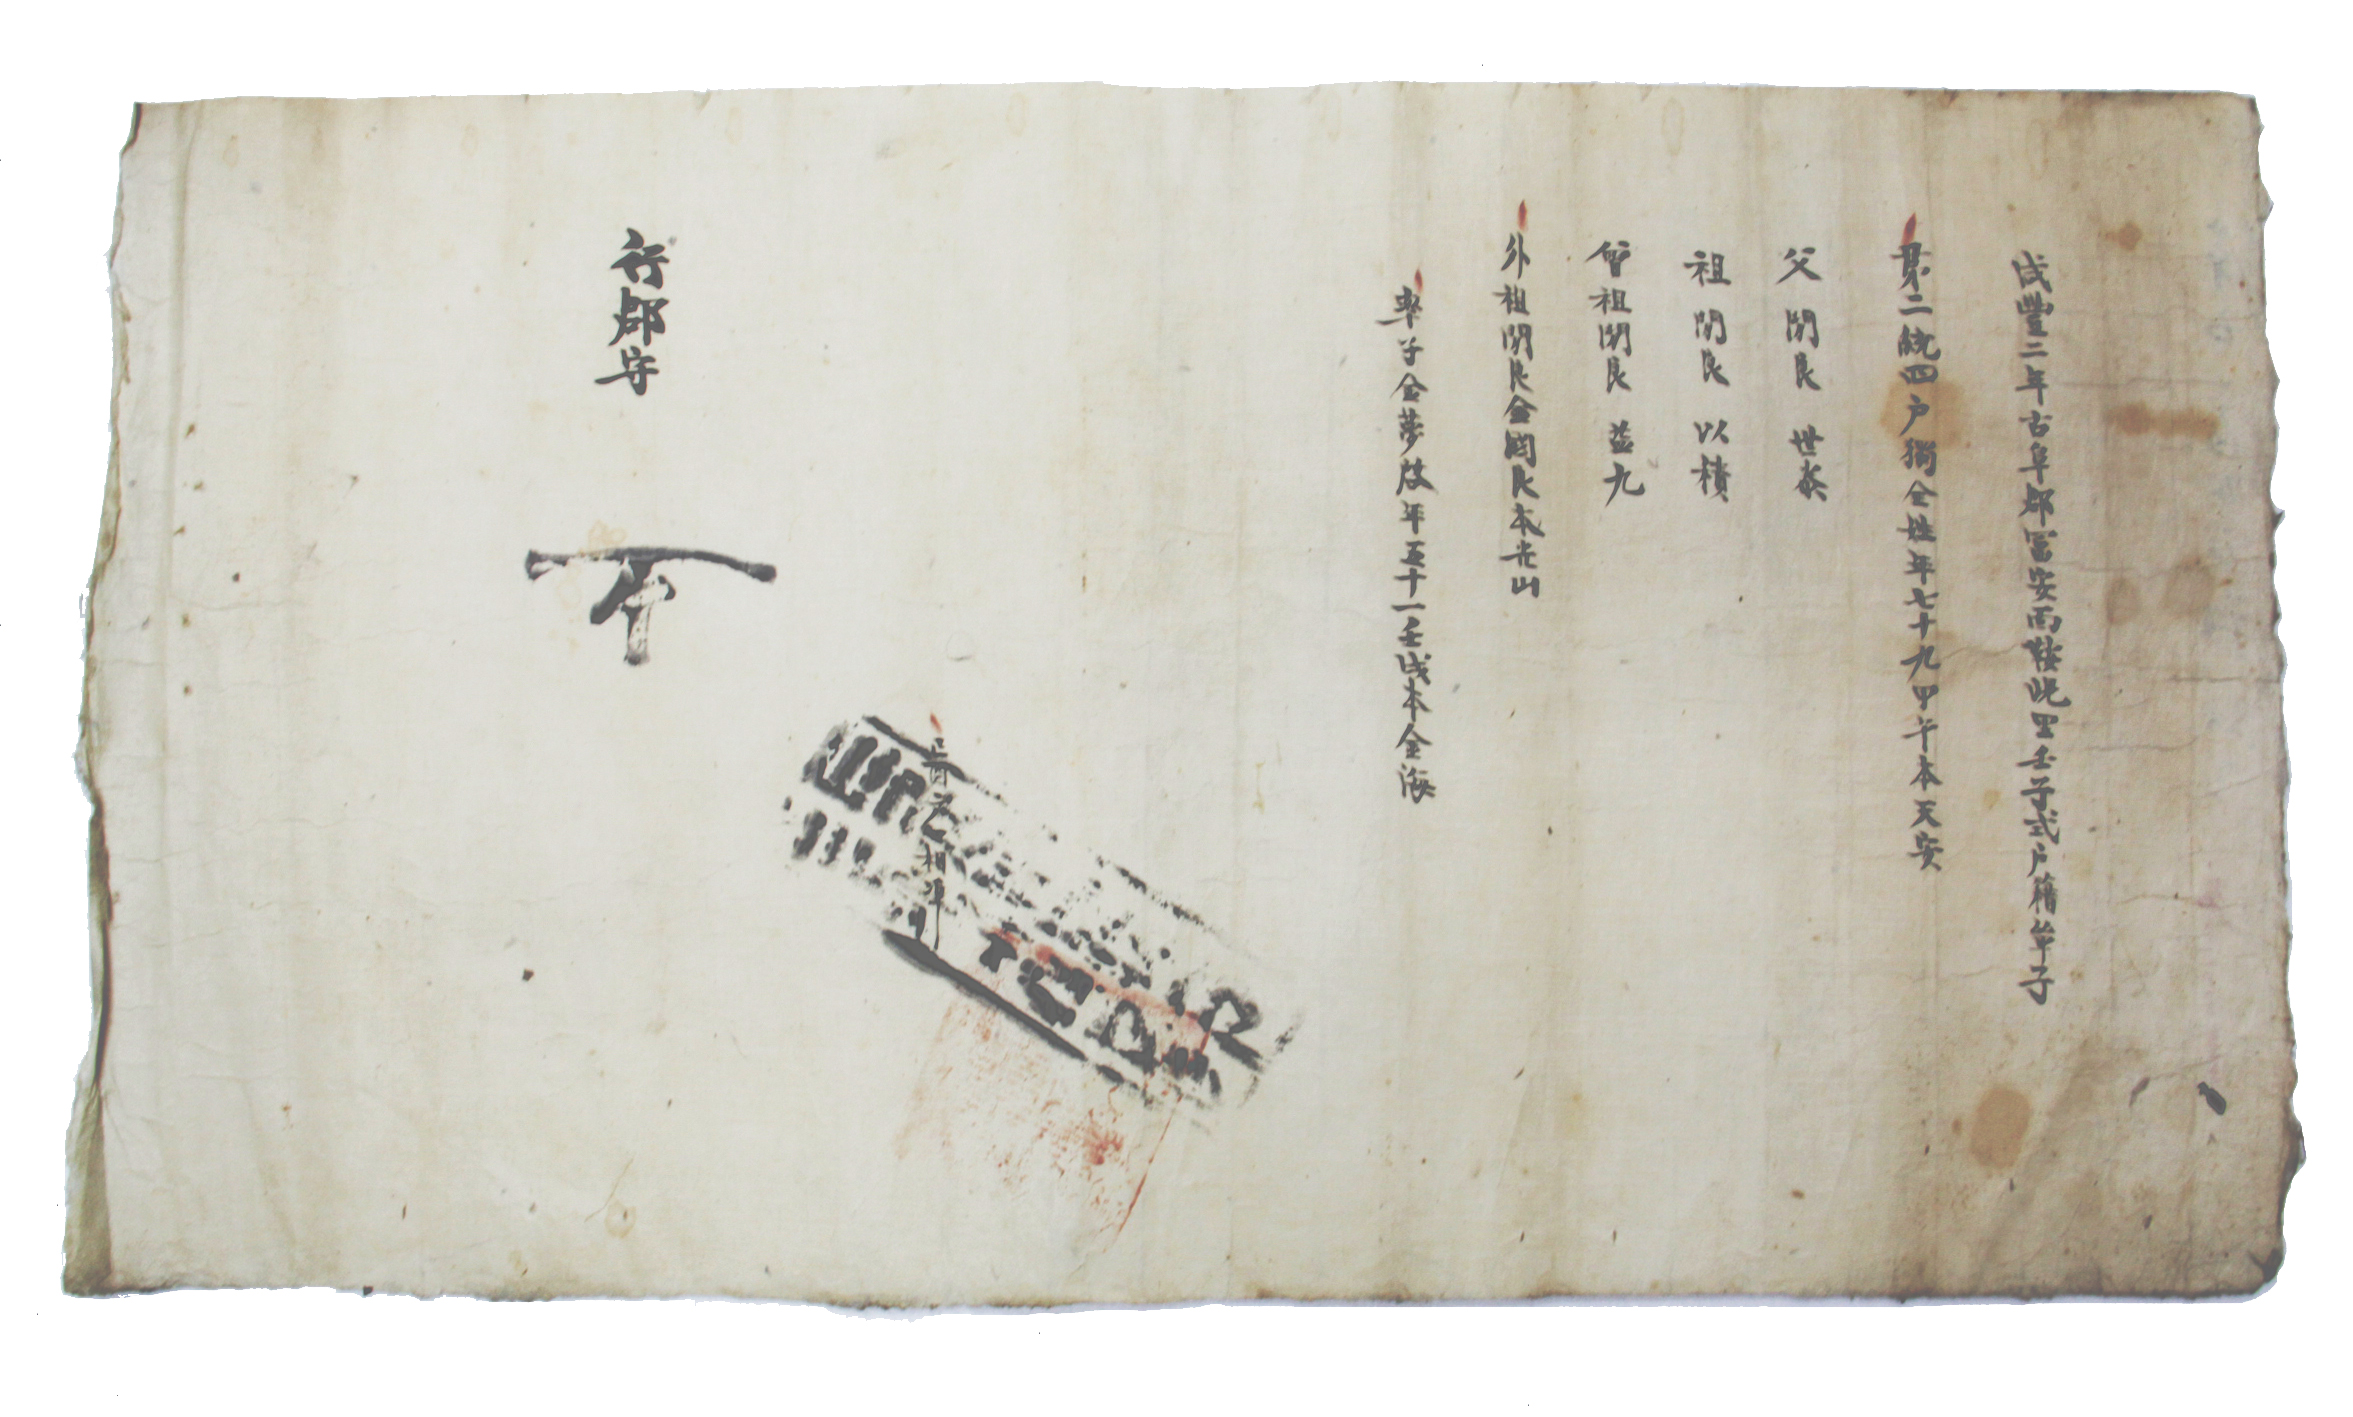 咸豐二年古阜郡富安面鞍峴里壬子式戶籍單子
第二統四戶獨全姓年七十九甲午本天安
父閑良 世采
祖閑良 以積
曾祖閑良 益九
外祖閑良金國良本光山
率子金夢啟年五十一壬戌本金海
行郡守